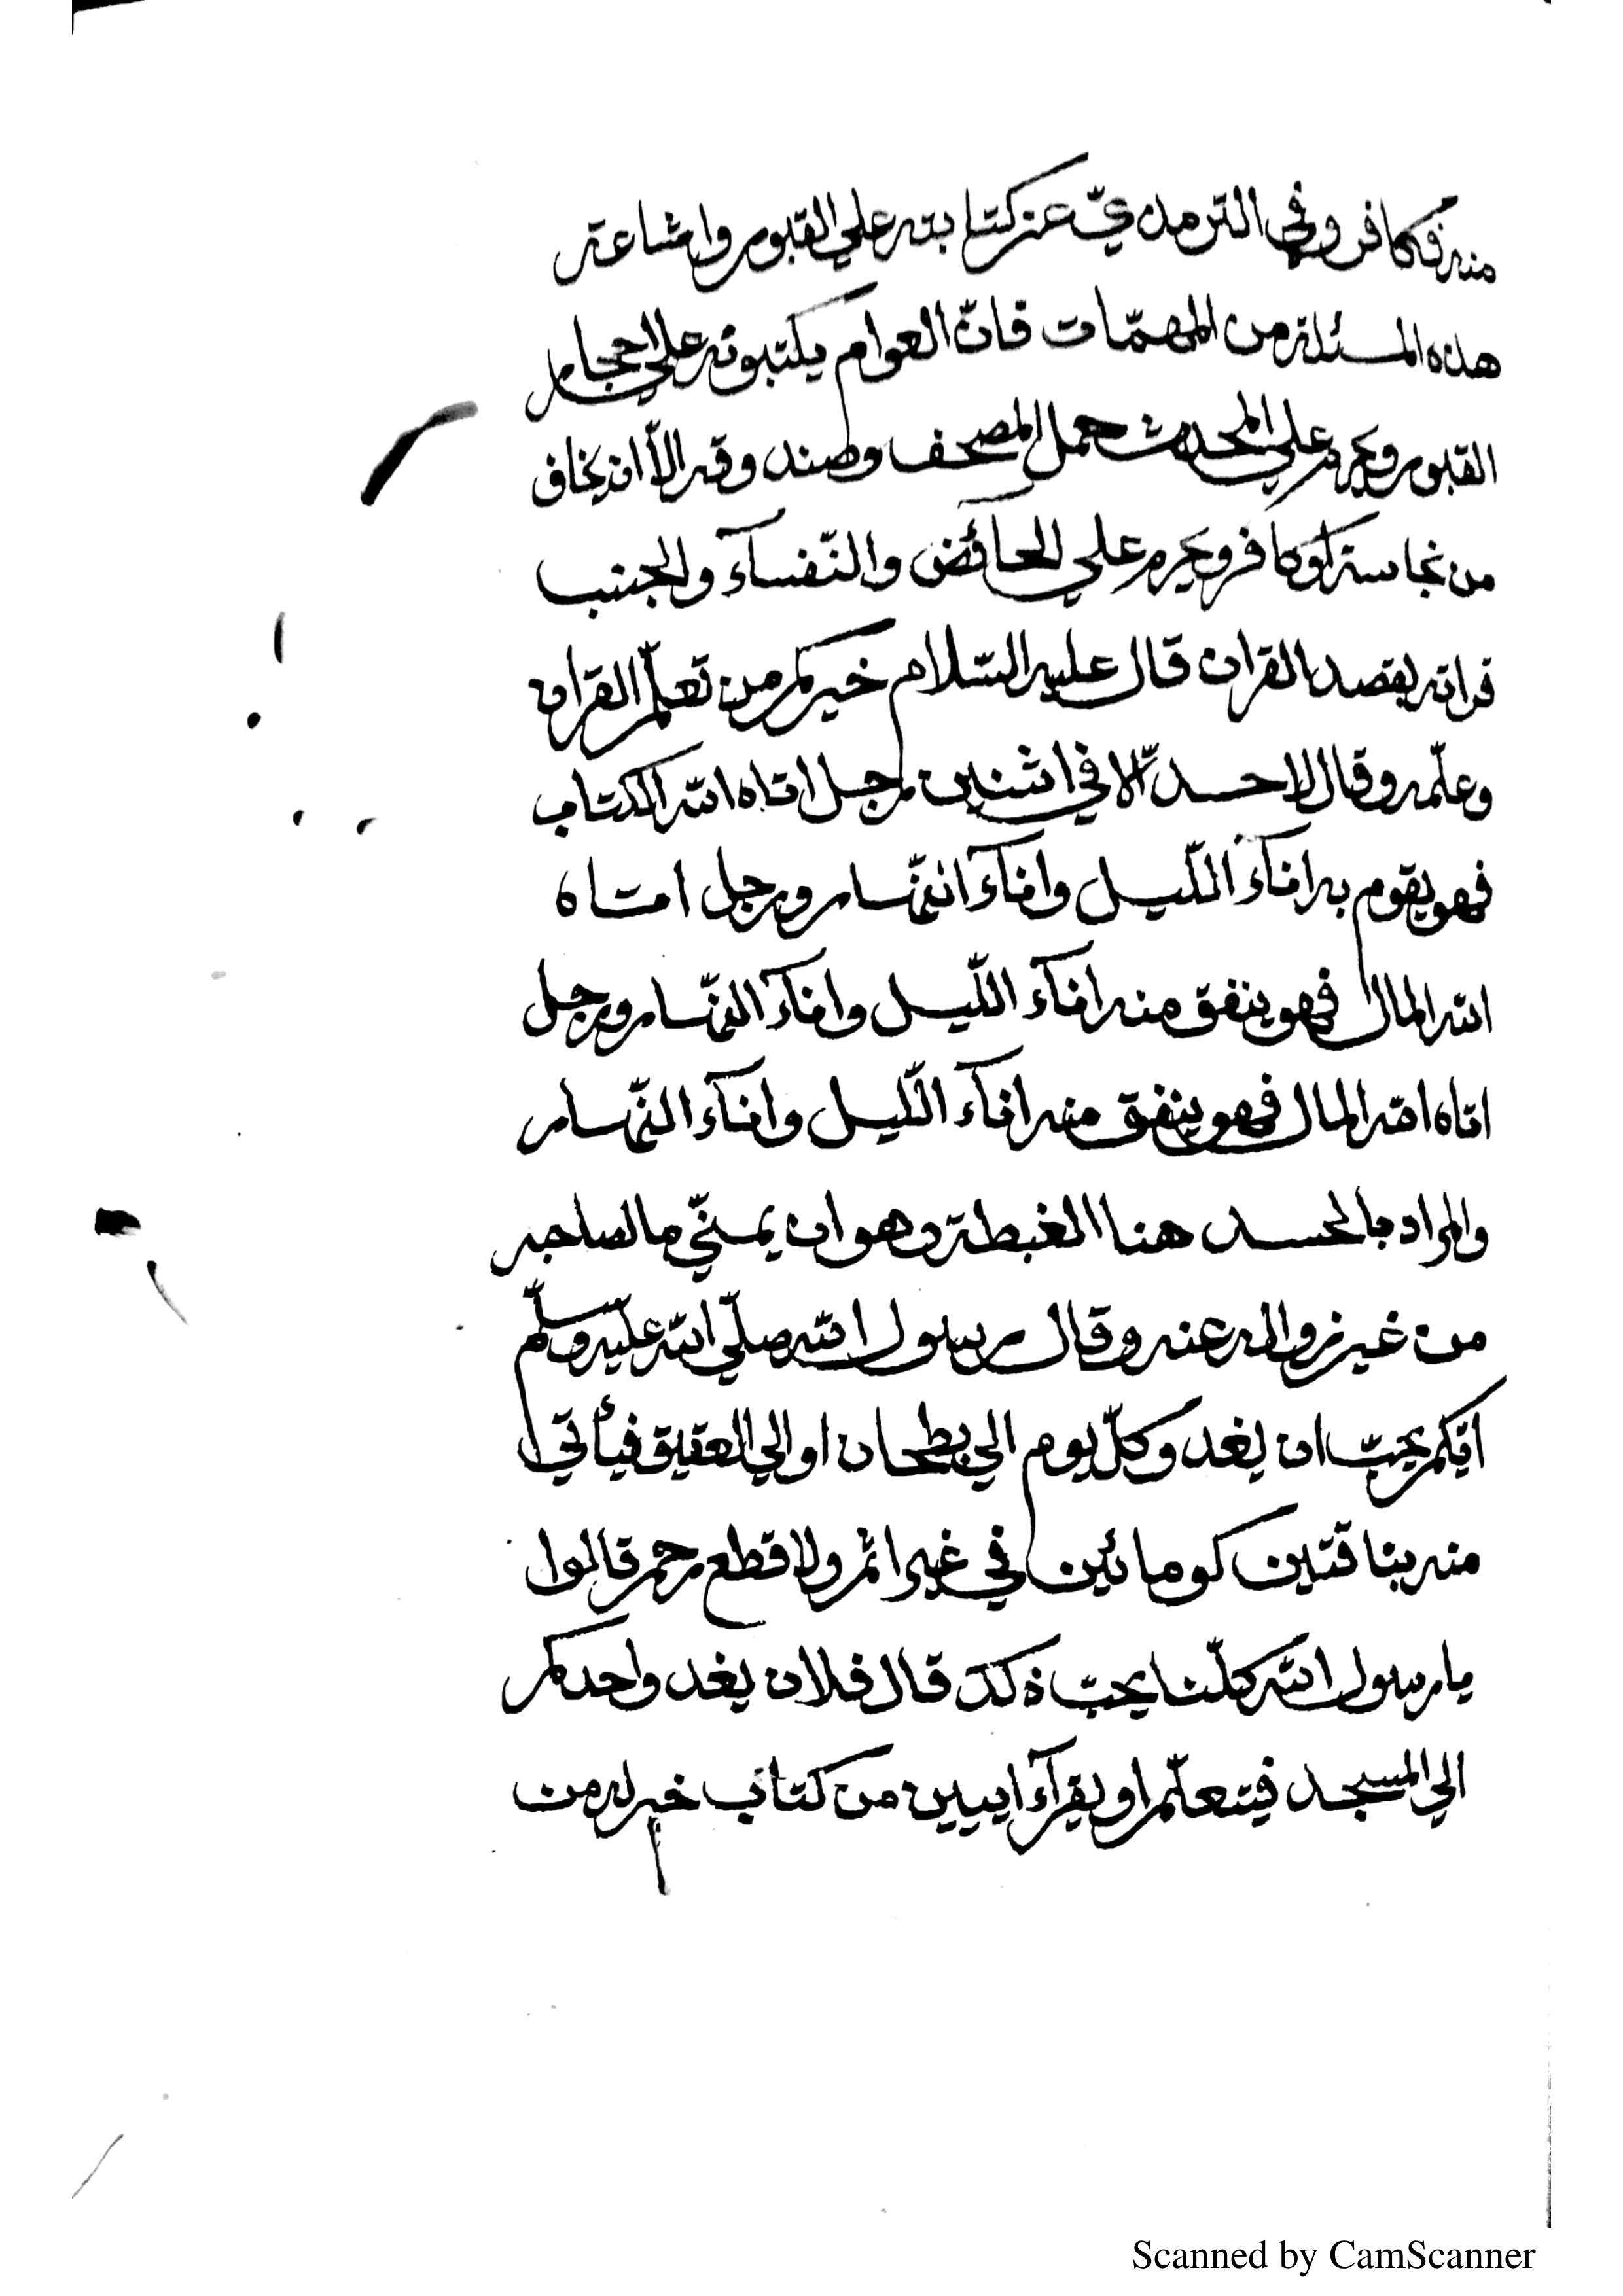 منه فكافر وفي الترمذيّ عن كتابته علي القبور واشاعة
هذه المسئلة من المهمّات فانّ العوام يكتبونه علي احجار
القبور ويحرم علي المحدث حمل المصحف وصندوقه الاّ ان يخاف
من نجاسة اوكافر ويحرم علي الحائض والنّفسآء والجنب
قراته بقصد القران قال عليه السّلام خيركم من تعلّم القران
وعلّمه وقال لا حسد الاّ في اثنين رجل اتاه الله الكتاب
فهو يقوم به اناآء اللّيل واناآء النّهار ورجل اتاه
الله المال فهو ينفق منه اناآء اللّيل واناآء النّهار ورجل
اتاه الله المال فهو ينفق منه اناآء اللّيل واناآء النّهار
والمراد بالحسد هنا الغبطة وهو ان يمنّي مالصاحبه
من غير زواله عنه وقال رسول الله صلّي الله عليه وسلّم
ايّكم يحبّ ان يغد وكلّ يوم الي بطحان او الي العقيق فيأتي
منه بناقتين كومائين في غير اثم ولا قطع رحم قالوا
يا رسول الله كلّنا يحبّ ذلك قال فلان يغد واحدكم
الي المسجد فيتعلّم او يقرآء ايتين من كتاب خير له من
Scanned by CamScanner